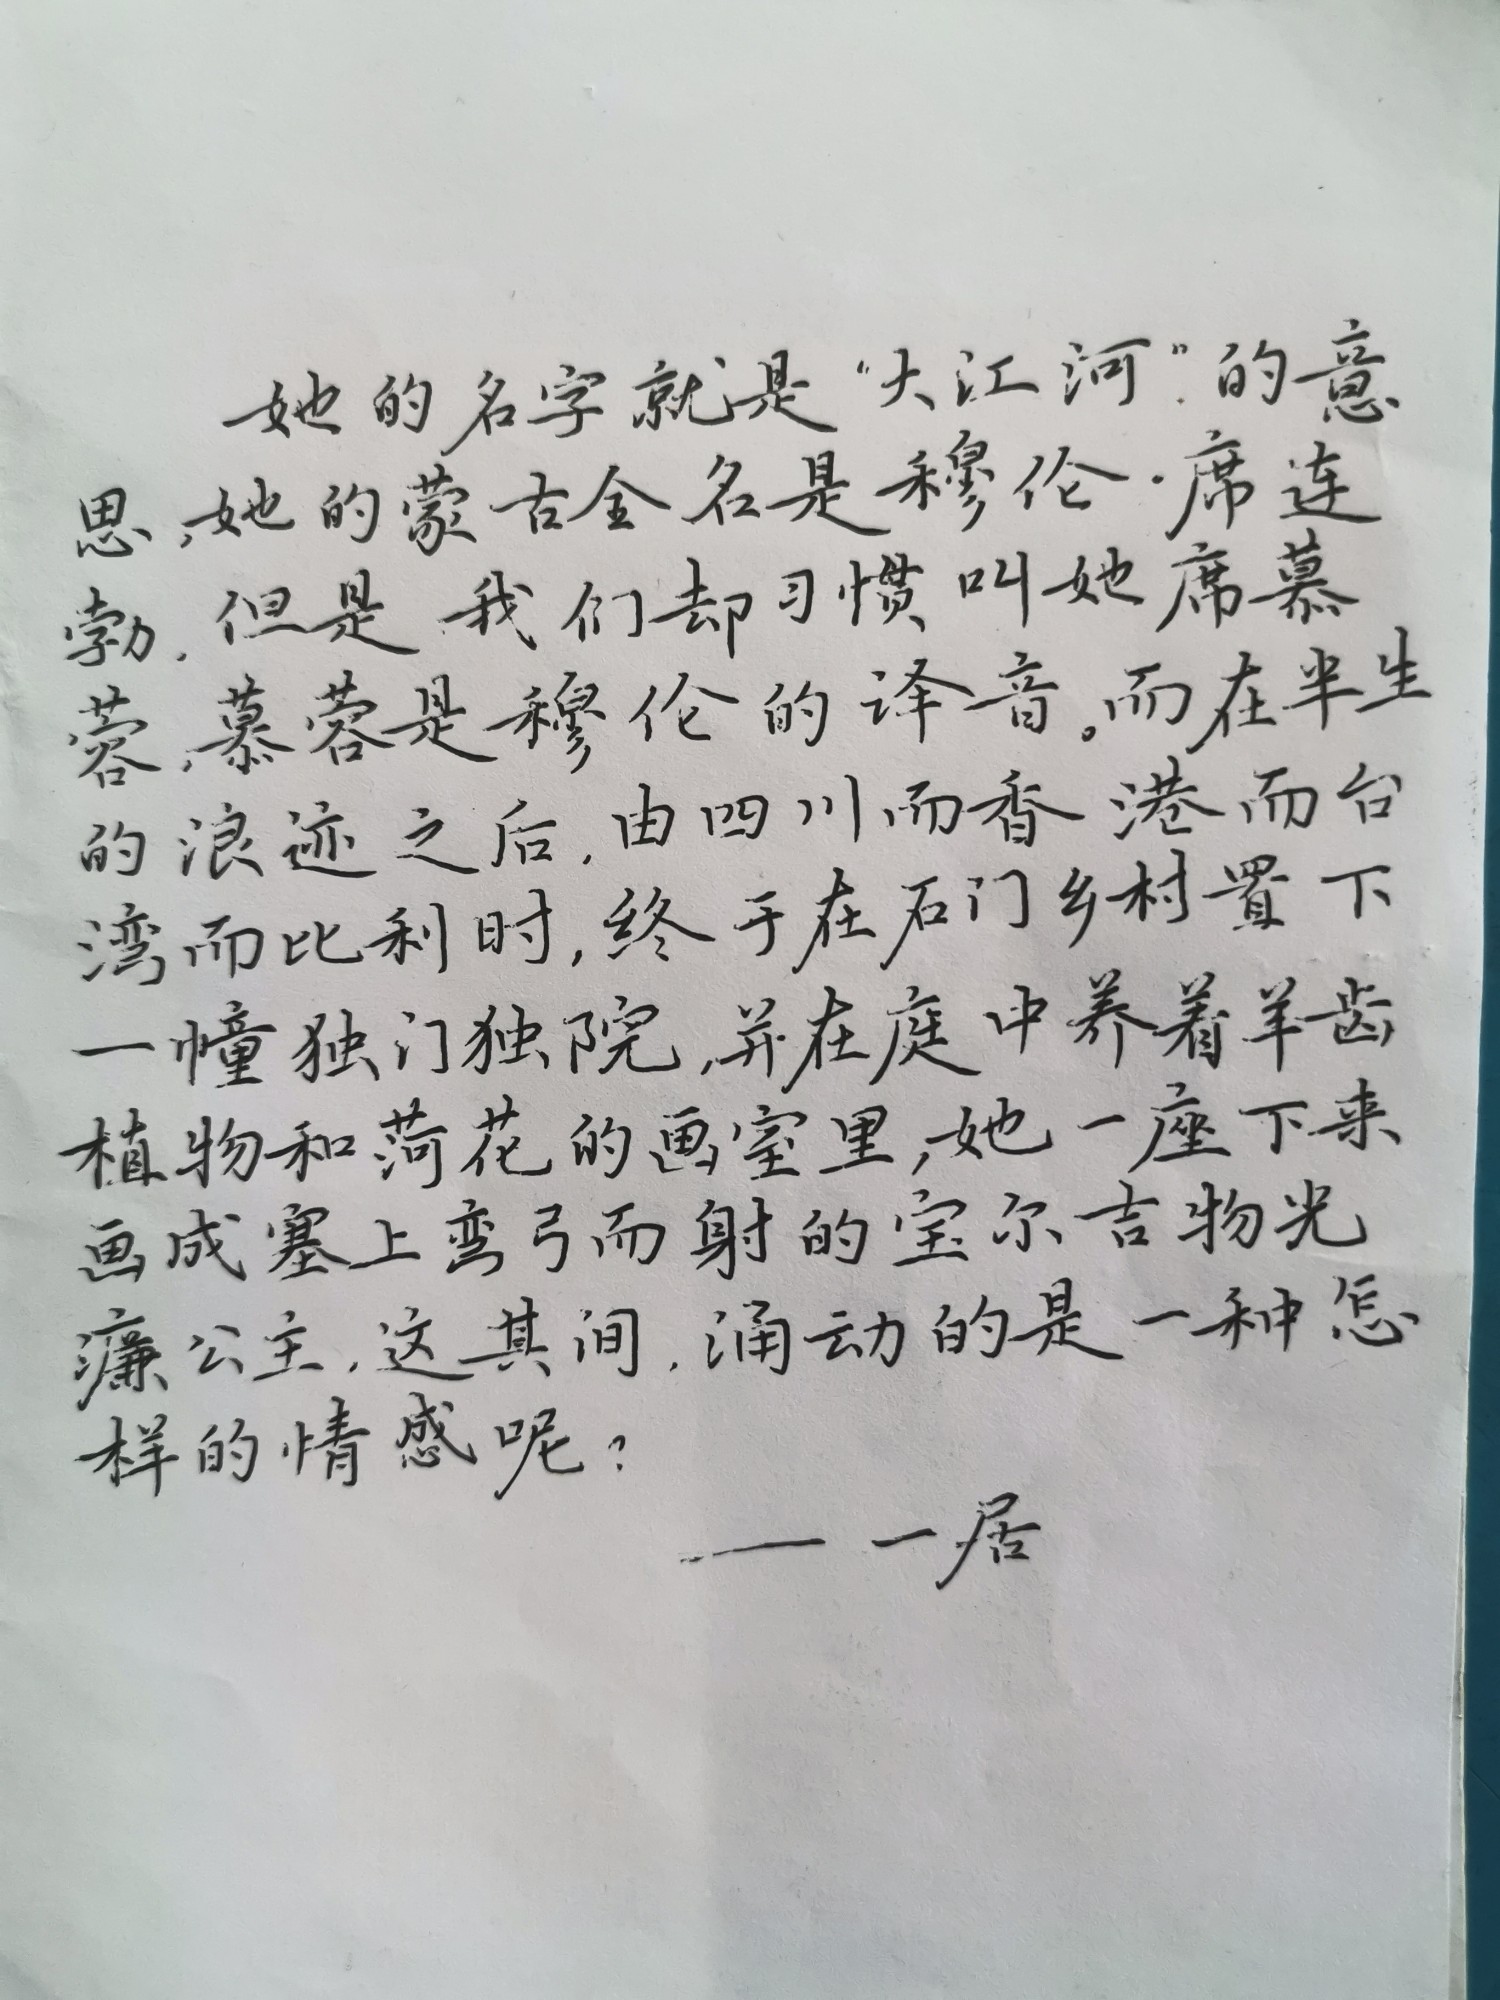 她的名字就是“大江河”的意
思,她的蒙古全名是穆伦·席连
勃,但是我们却习惯叫她席慕
蓉,慕蓉是穆伦的译音。而在半生
的浪迹之后,由四川而香港而台
湾而比利时,终于在石门乡村置下
一幢独门独院,并在庭中养着羊齿
植物和荷花的画室里,她一座下来
画成塞上弯弓而射的宝尔吉物光
濂公主,这其间,涌动的是一种怎
样的情感呢?
——一居